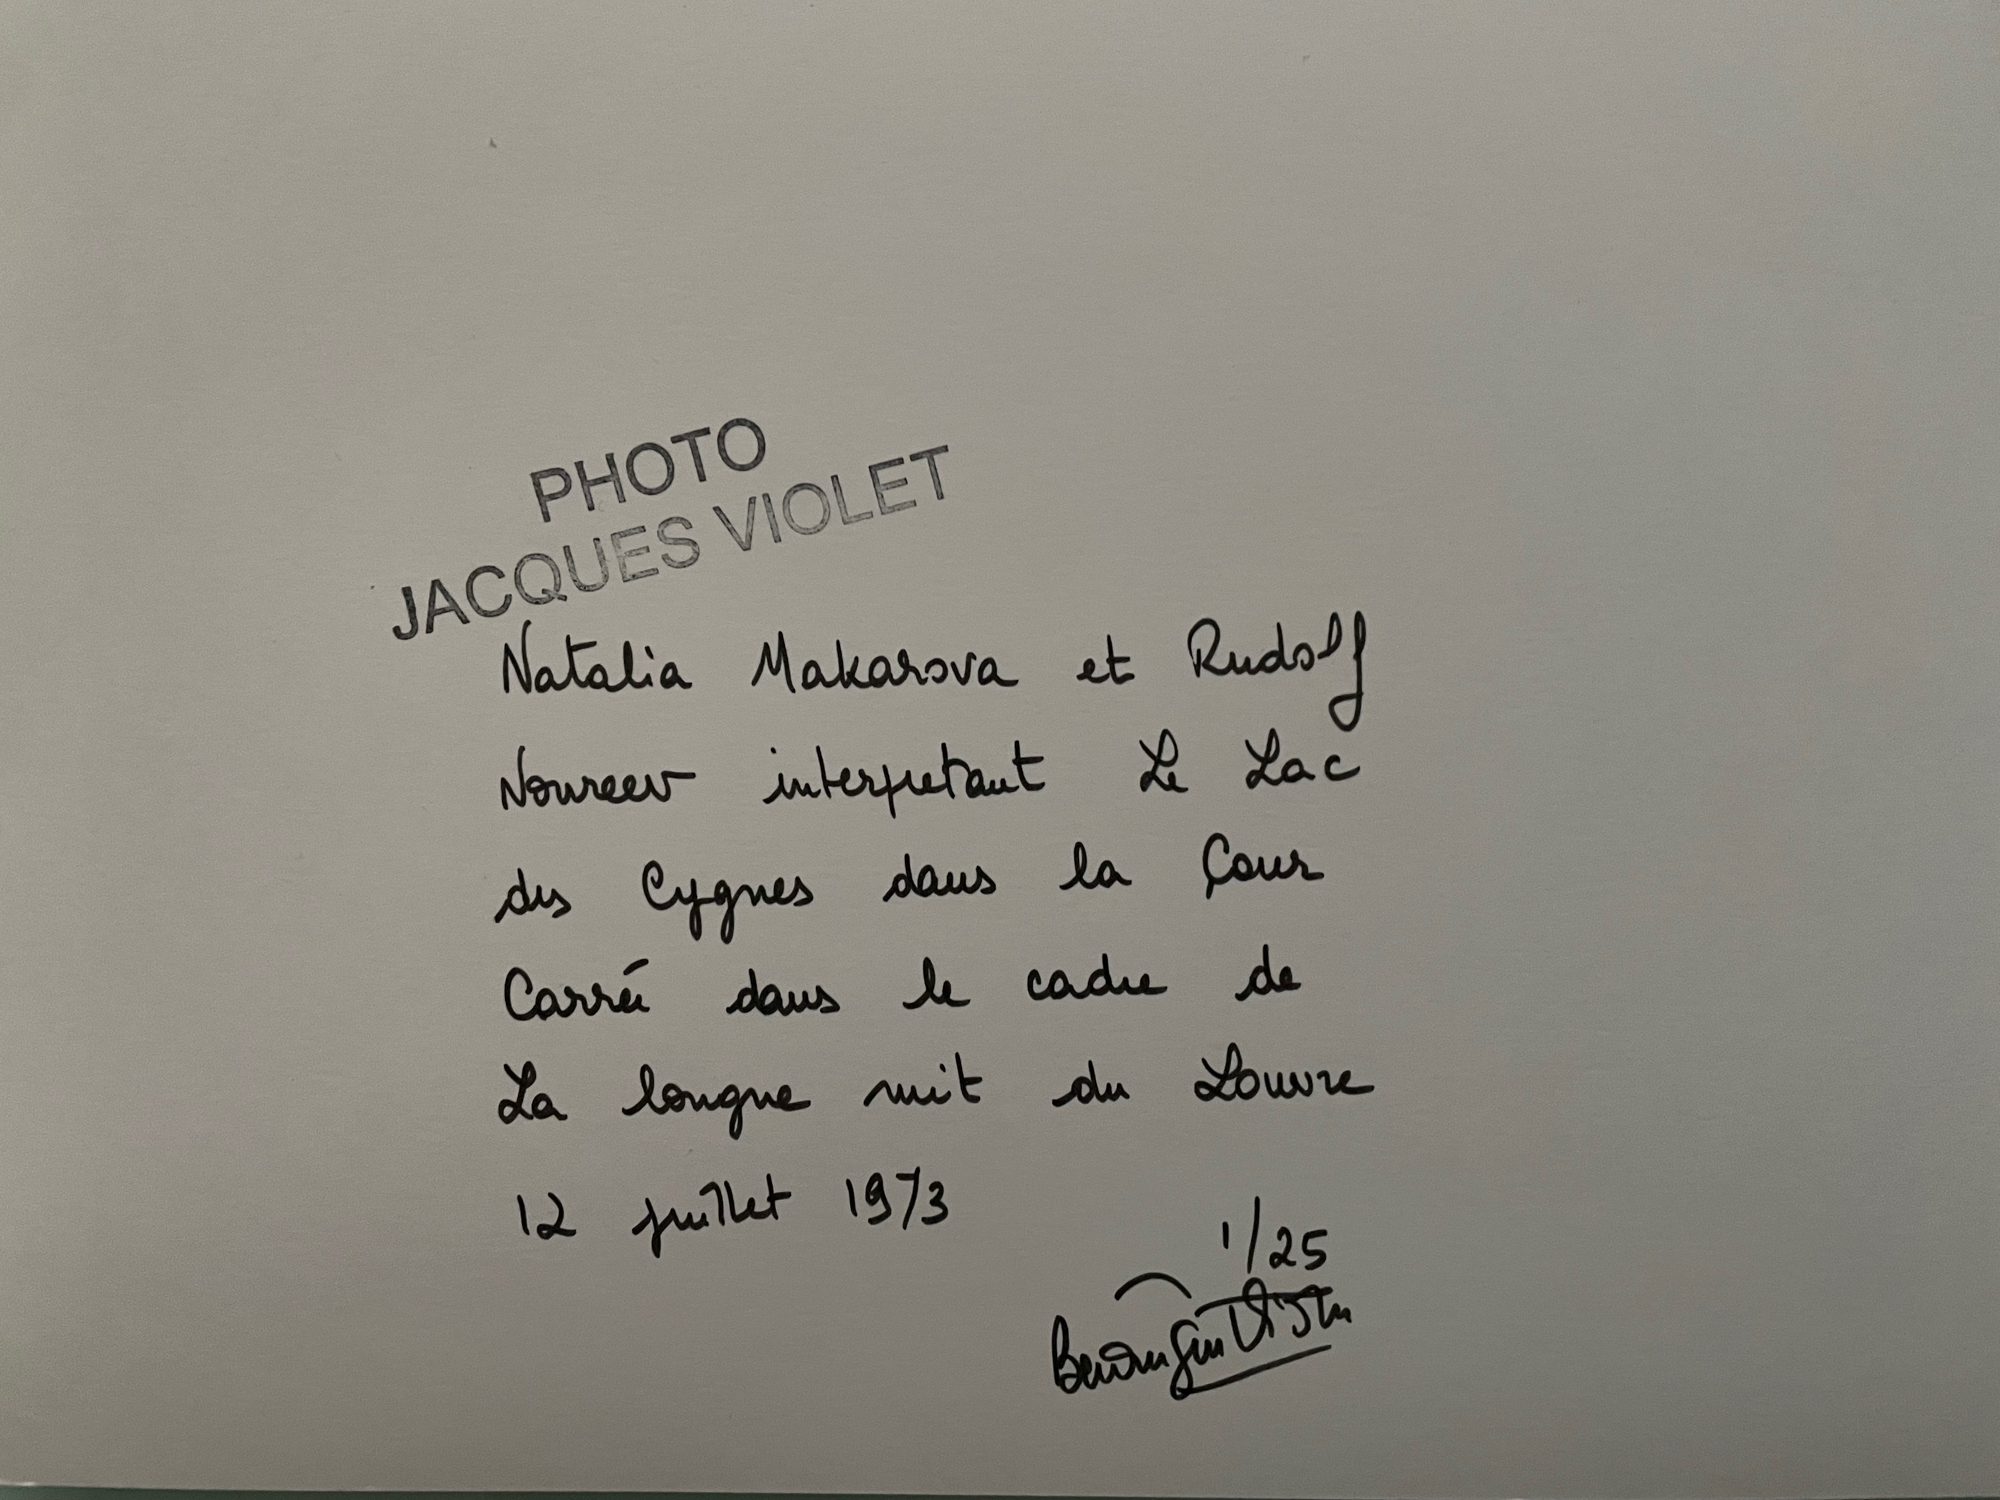 PHOTO
JACQUES VIOLET
Natalia Makarova et Rudolf
Noureev interpretant Le Lac
des Cygnes dans la Cour
Carrée dans le cadre de
La longue nuit du Louvre
12 juillet 1973
1/25